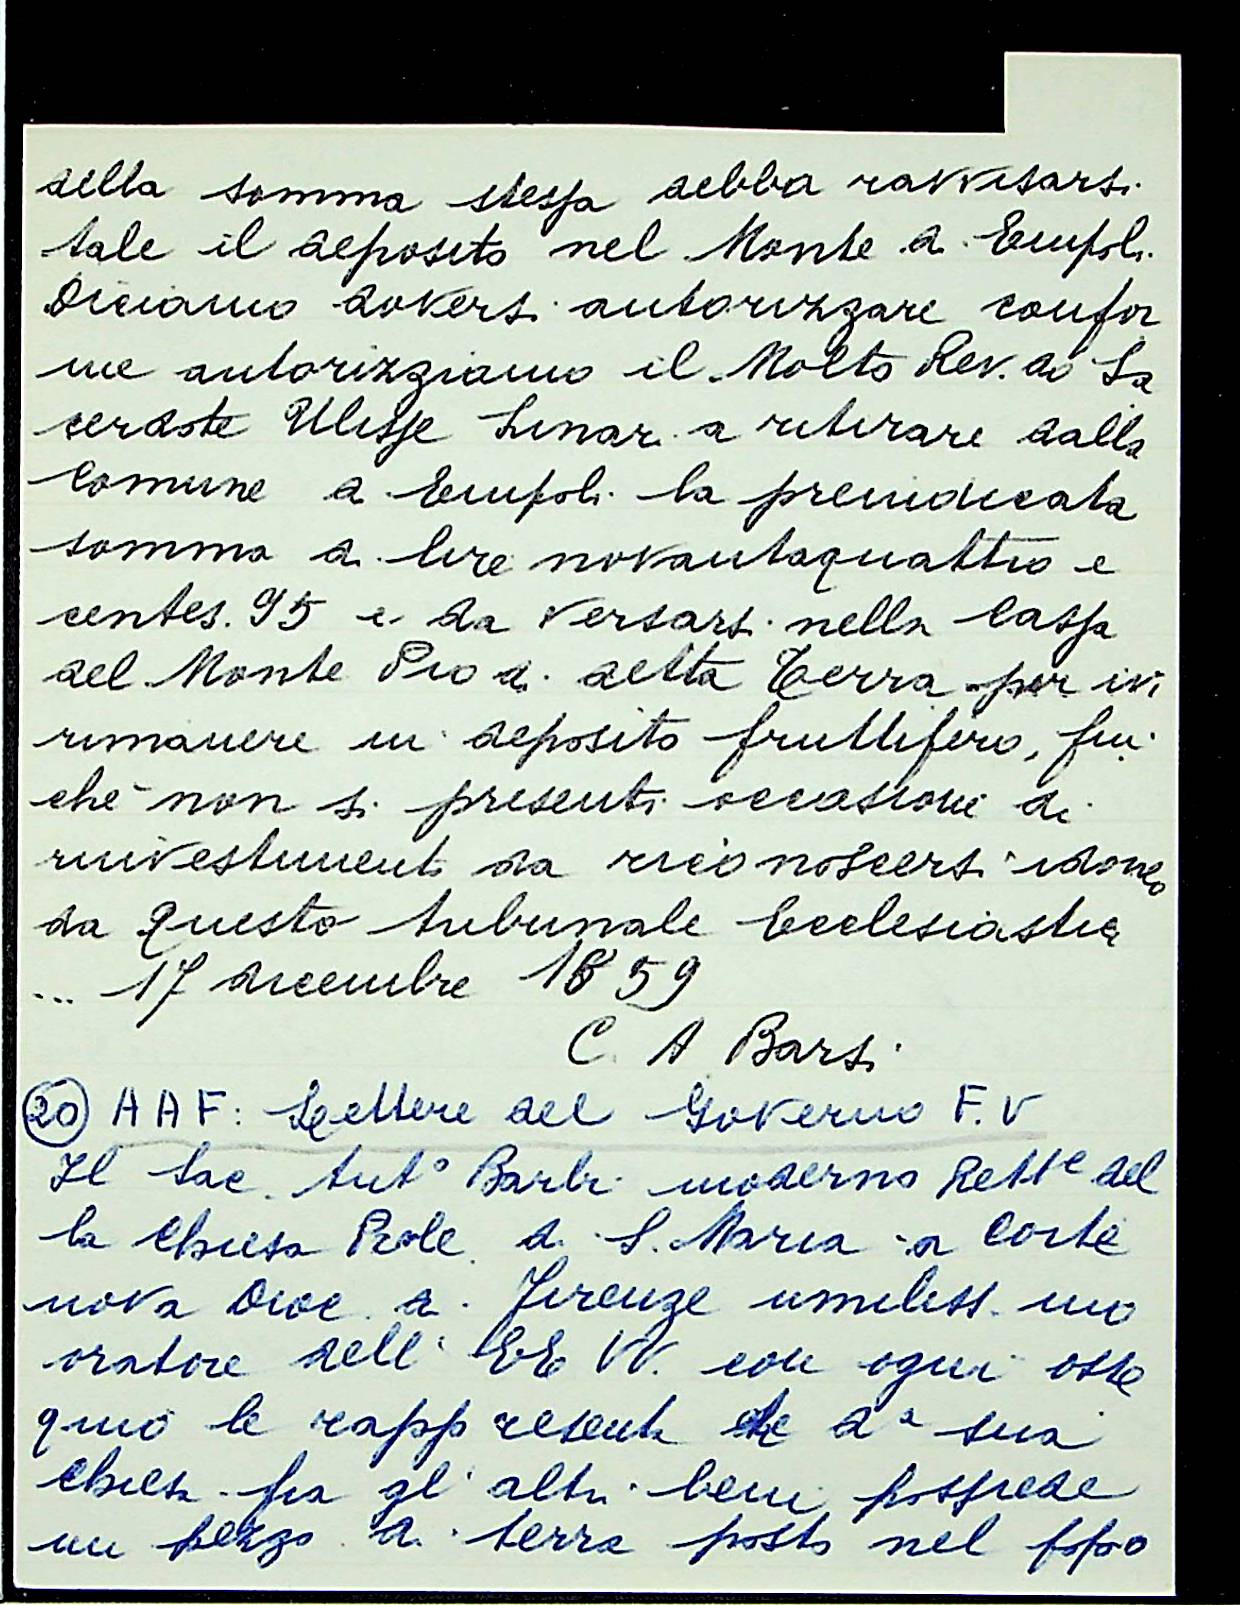 della somma stessa debba ravvisarsi
tale il deposito nel Monte di Empoli.
Diciamo doversi autorizzare confor
me autorizziamo il Molto Rev.do Sa
cerdote Ulisse Lunari a ritirare dalla
Comune di Empoli la preindicata
somma di lire novantaquattro e
centes. 95 e da versarsi nella Cassa
del Monte Pio di detta Terra per ivi
rimanere in deposito fruttifero, fin
chè non si presenti occasione di
rinvestimenti da riconoscersi idoneo
da questo tribunale Ecclesiastico
... 17 dicembre 1859
C. A Barsi
20 A A F: Lettere del Governo F. V
Il Sac. Ant° Barbi moderno Rett.e del
la Chiesa Prole di S. Maria a Corte
nova Dioc. di Firenze umiliss.mo
oratore dell' EE VV. con ogni osse
quio le rappresenta che d.a sua
Chiesa fra gl' altri beni possiede
un pezzo di terra posto nel popo